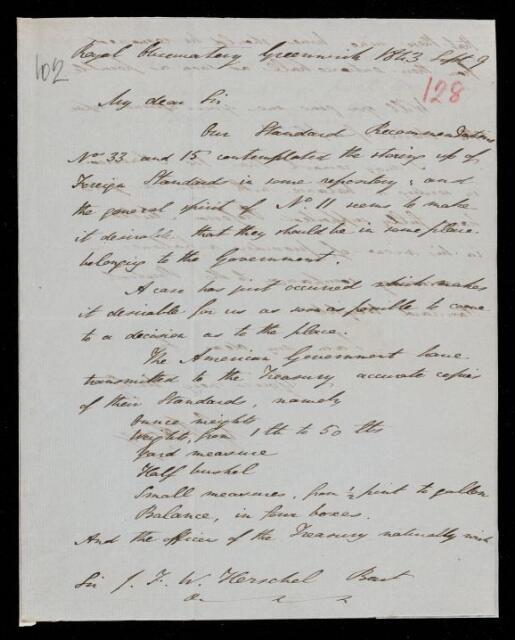 Royal Observatory Greenwich 1843 Sept 9
102
128
My dear Sir
Our Standard Recommendations
No 33 and 15 contemplated the storing up of
Foreign Standards in some repository; and
the general spirit of No 11 seems to make
it desirable that they should be in some place
belonging to the Government.
A case has just occurred which makes
it desirable for us as soon as possible to come
to a decision as to the place.
The American Government have
transmitted to the Treasury accurate copies
of their Standards, namely
Ounce weights
Weights, from 1 lb to 50 lbs
Yard measure
Half bushel
Small measures, from ½ pint to gallon
Balance, in four boxes.
And the officer of the Treasury naturally wish
Sir J. F. W. Herschel Bart